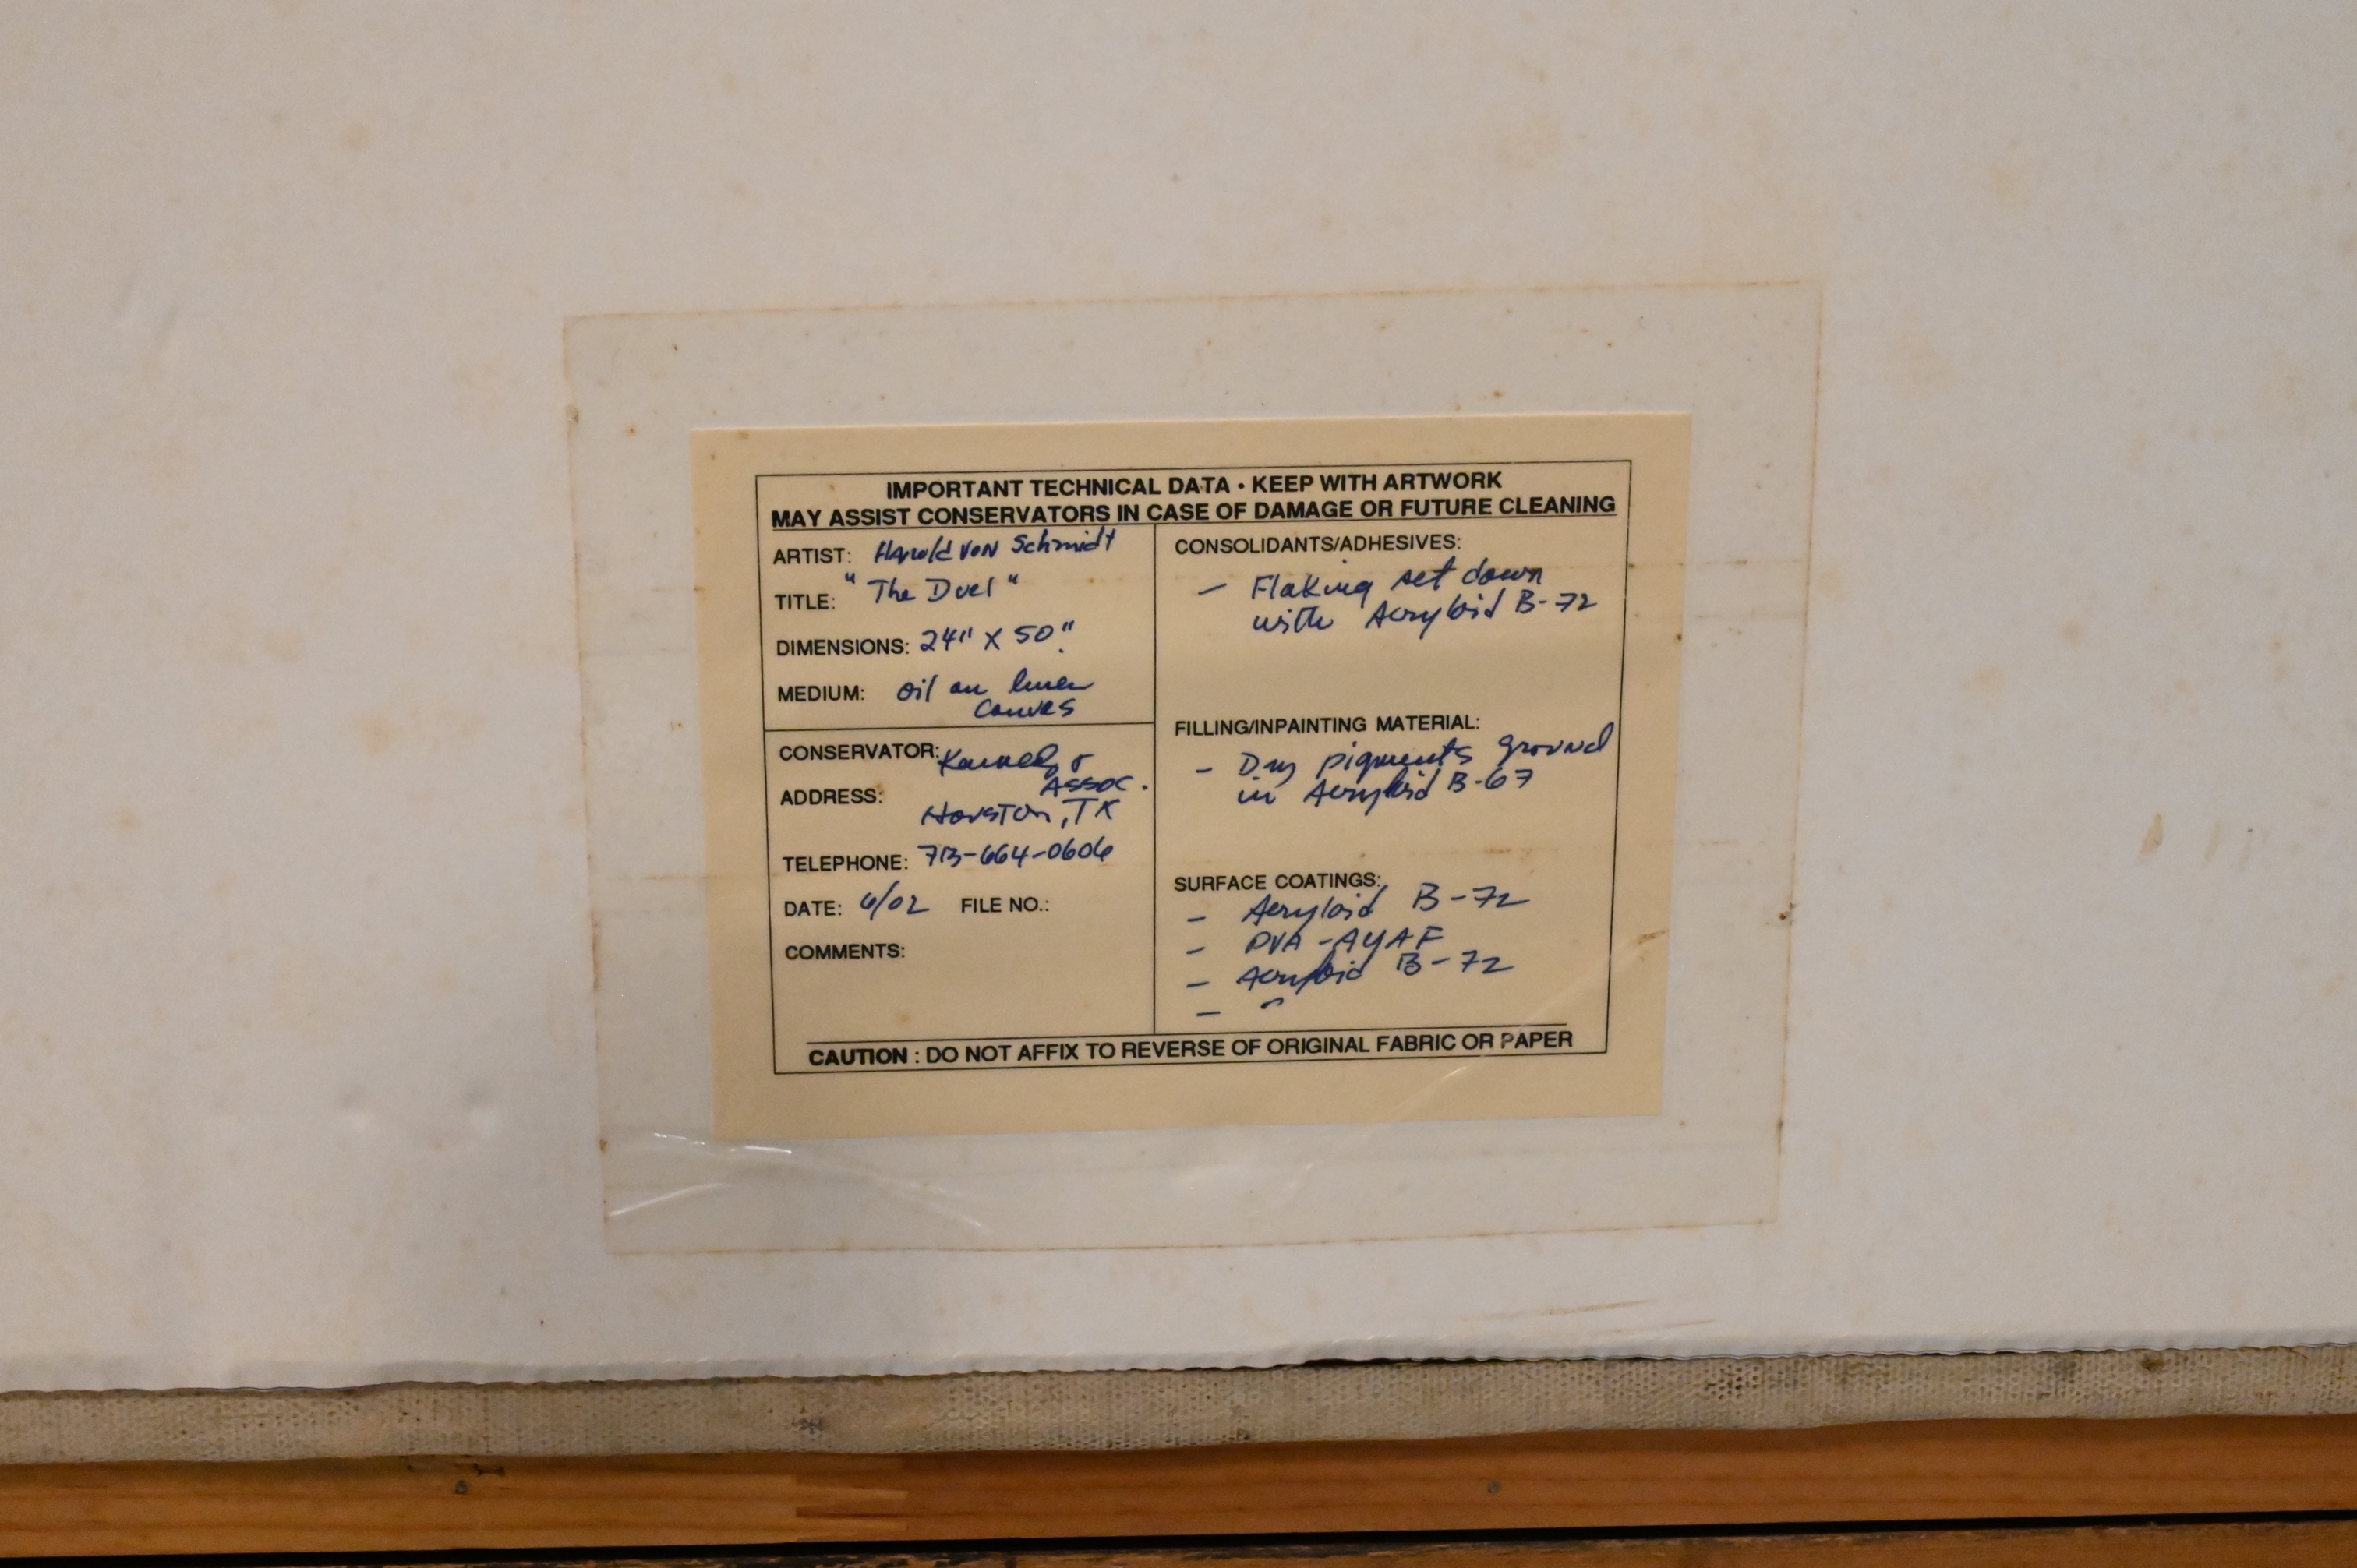 IMPORTANT TECHNICAL DATA • KEEP WITH ARTWORK
MAY ASSIST CONSERVATORS IN CASE OF DAMAGE OR FUTURE CLEANING
ARTIST: Harold von Schmidt
TITLE: "The Duel"
DIMENSIONS: 24" X 50"
MEDIUM: oil on linen
canvas
CONSERVATOR:
Assoc.
ADDRESS:
Houston, TX
TELEPHONE: 713-664-0606
DATE: 6/02 FILE NO.:
COMMENTS:
CONSOLIDANTS/ADHESIVES:
- Flaking set down
with Acryloid B-72
FILLING/INPAINTING MATERIAL:
- Dry pigments ground
in Acryloid B-67
SURFACE COATINGS:
- Acryloid B-72
- PVA - AYAF
- Acryloid B-72
- "
CAUTION : DO NOT AFFIX TO REVERSE OF ORIGINAL FABRIC OR PAPER